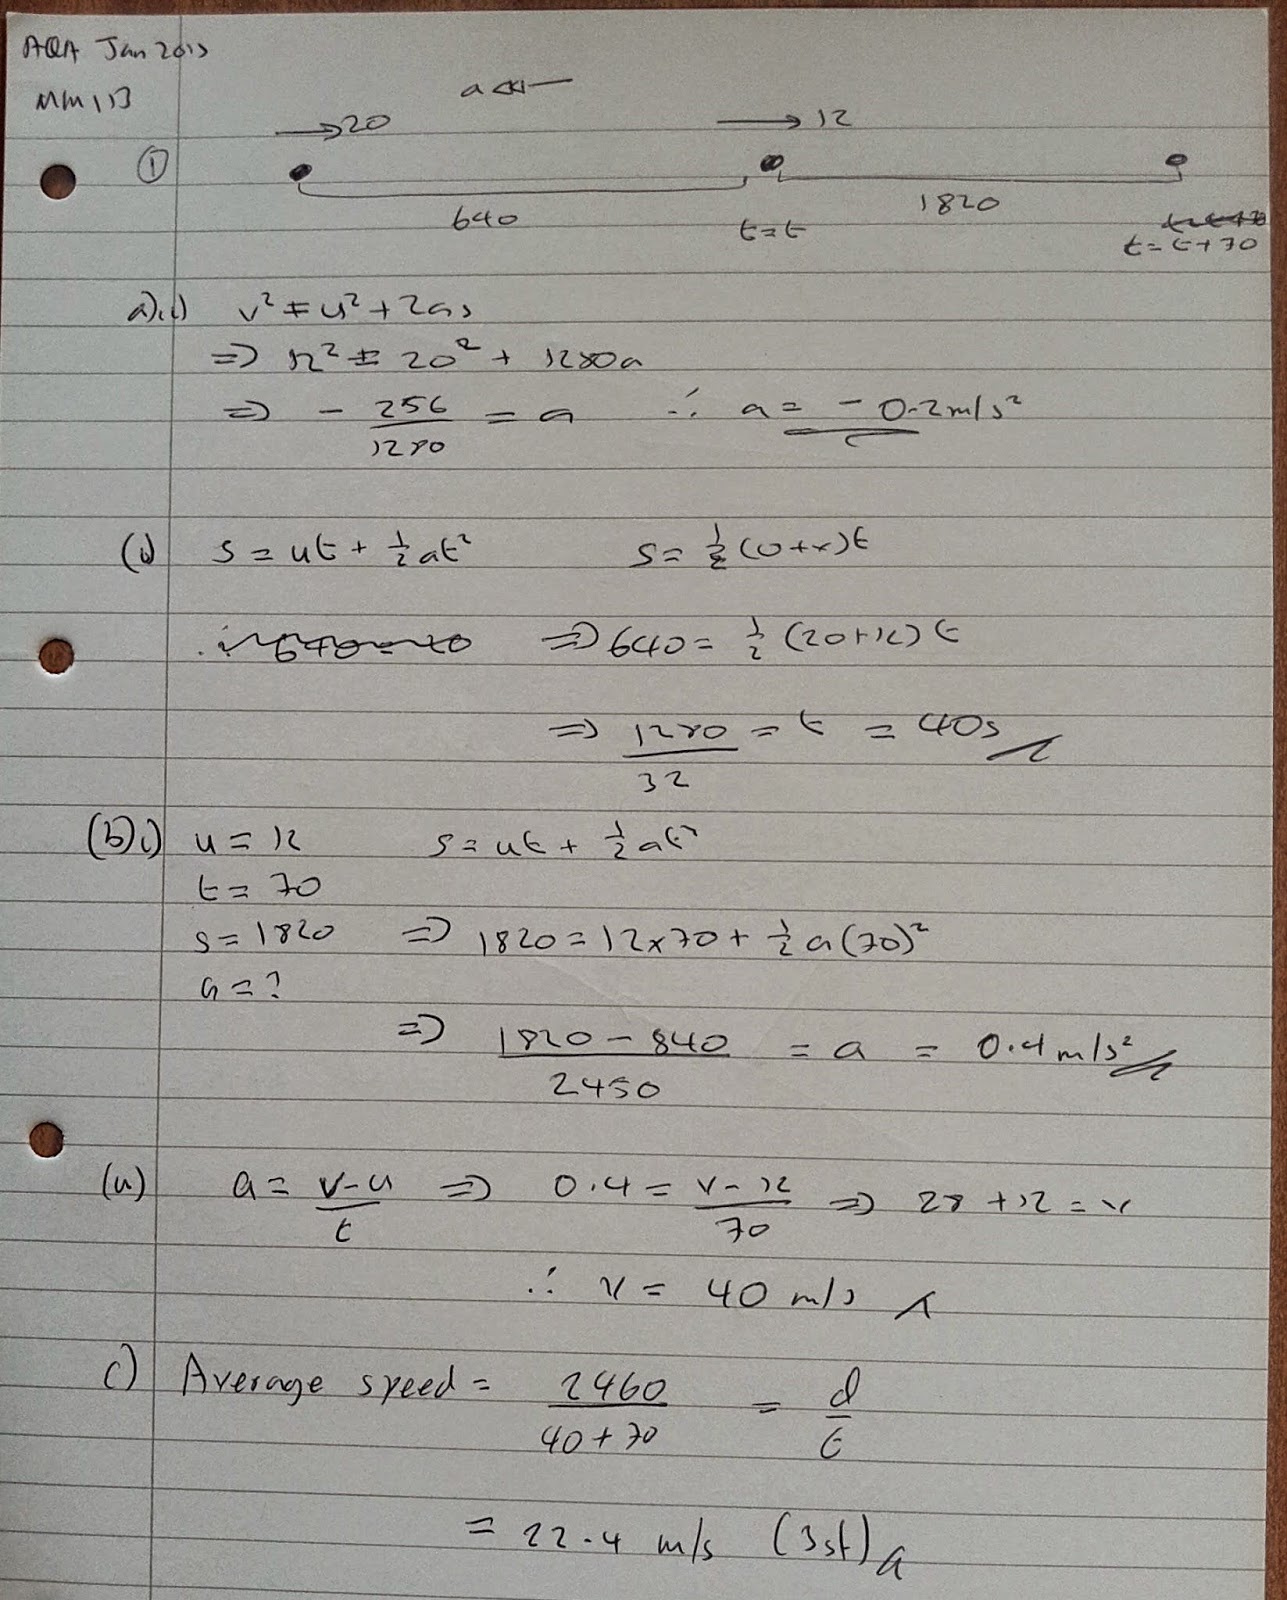 AQA Jan 2013
MM1B
a ↞
→ 20 → 12
①
640 t=t 1820
t=t+70
a)i) v² = u² + 2as
⇒ 12² = 20² + 1280a
⇒ - 256/1280 = a ∴ a = -0.2 m/s²
(ii) s = ut + ½at² s = ½(u+v)t
640 = 20 ⇒ 640 = ½(20+12)t
⇒ 1280/32 = t = 40s
(b)i) u = 12 s = ut + ½at²
t = 70
s = 1820 ⇒ 1820 = 12×70 + ½a(70)²
a = ?
⇒ (1820 - 840)/2450 = a = 0.4 m/s²
(ii) a = (v-u)/t ⇒ 0.4 = (v-12)/70 ⇒ 28 + 12 = v
∴ v = 40 m/s
c) Average speed = 2460/(40+70) = d/t
= 22.4 m/s (3sf)